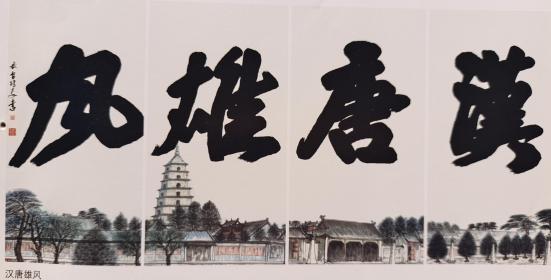 漢唐雄风
汉唐雄风